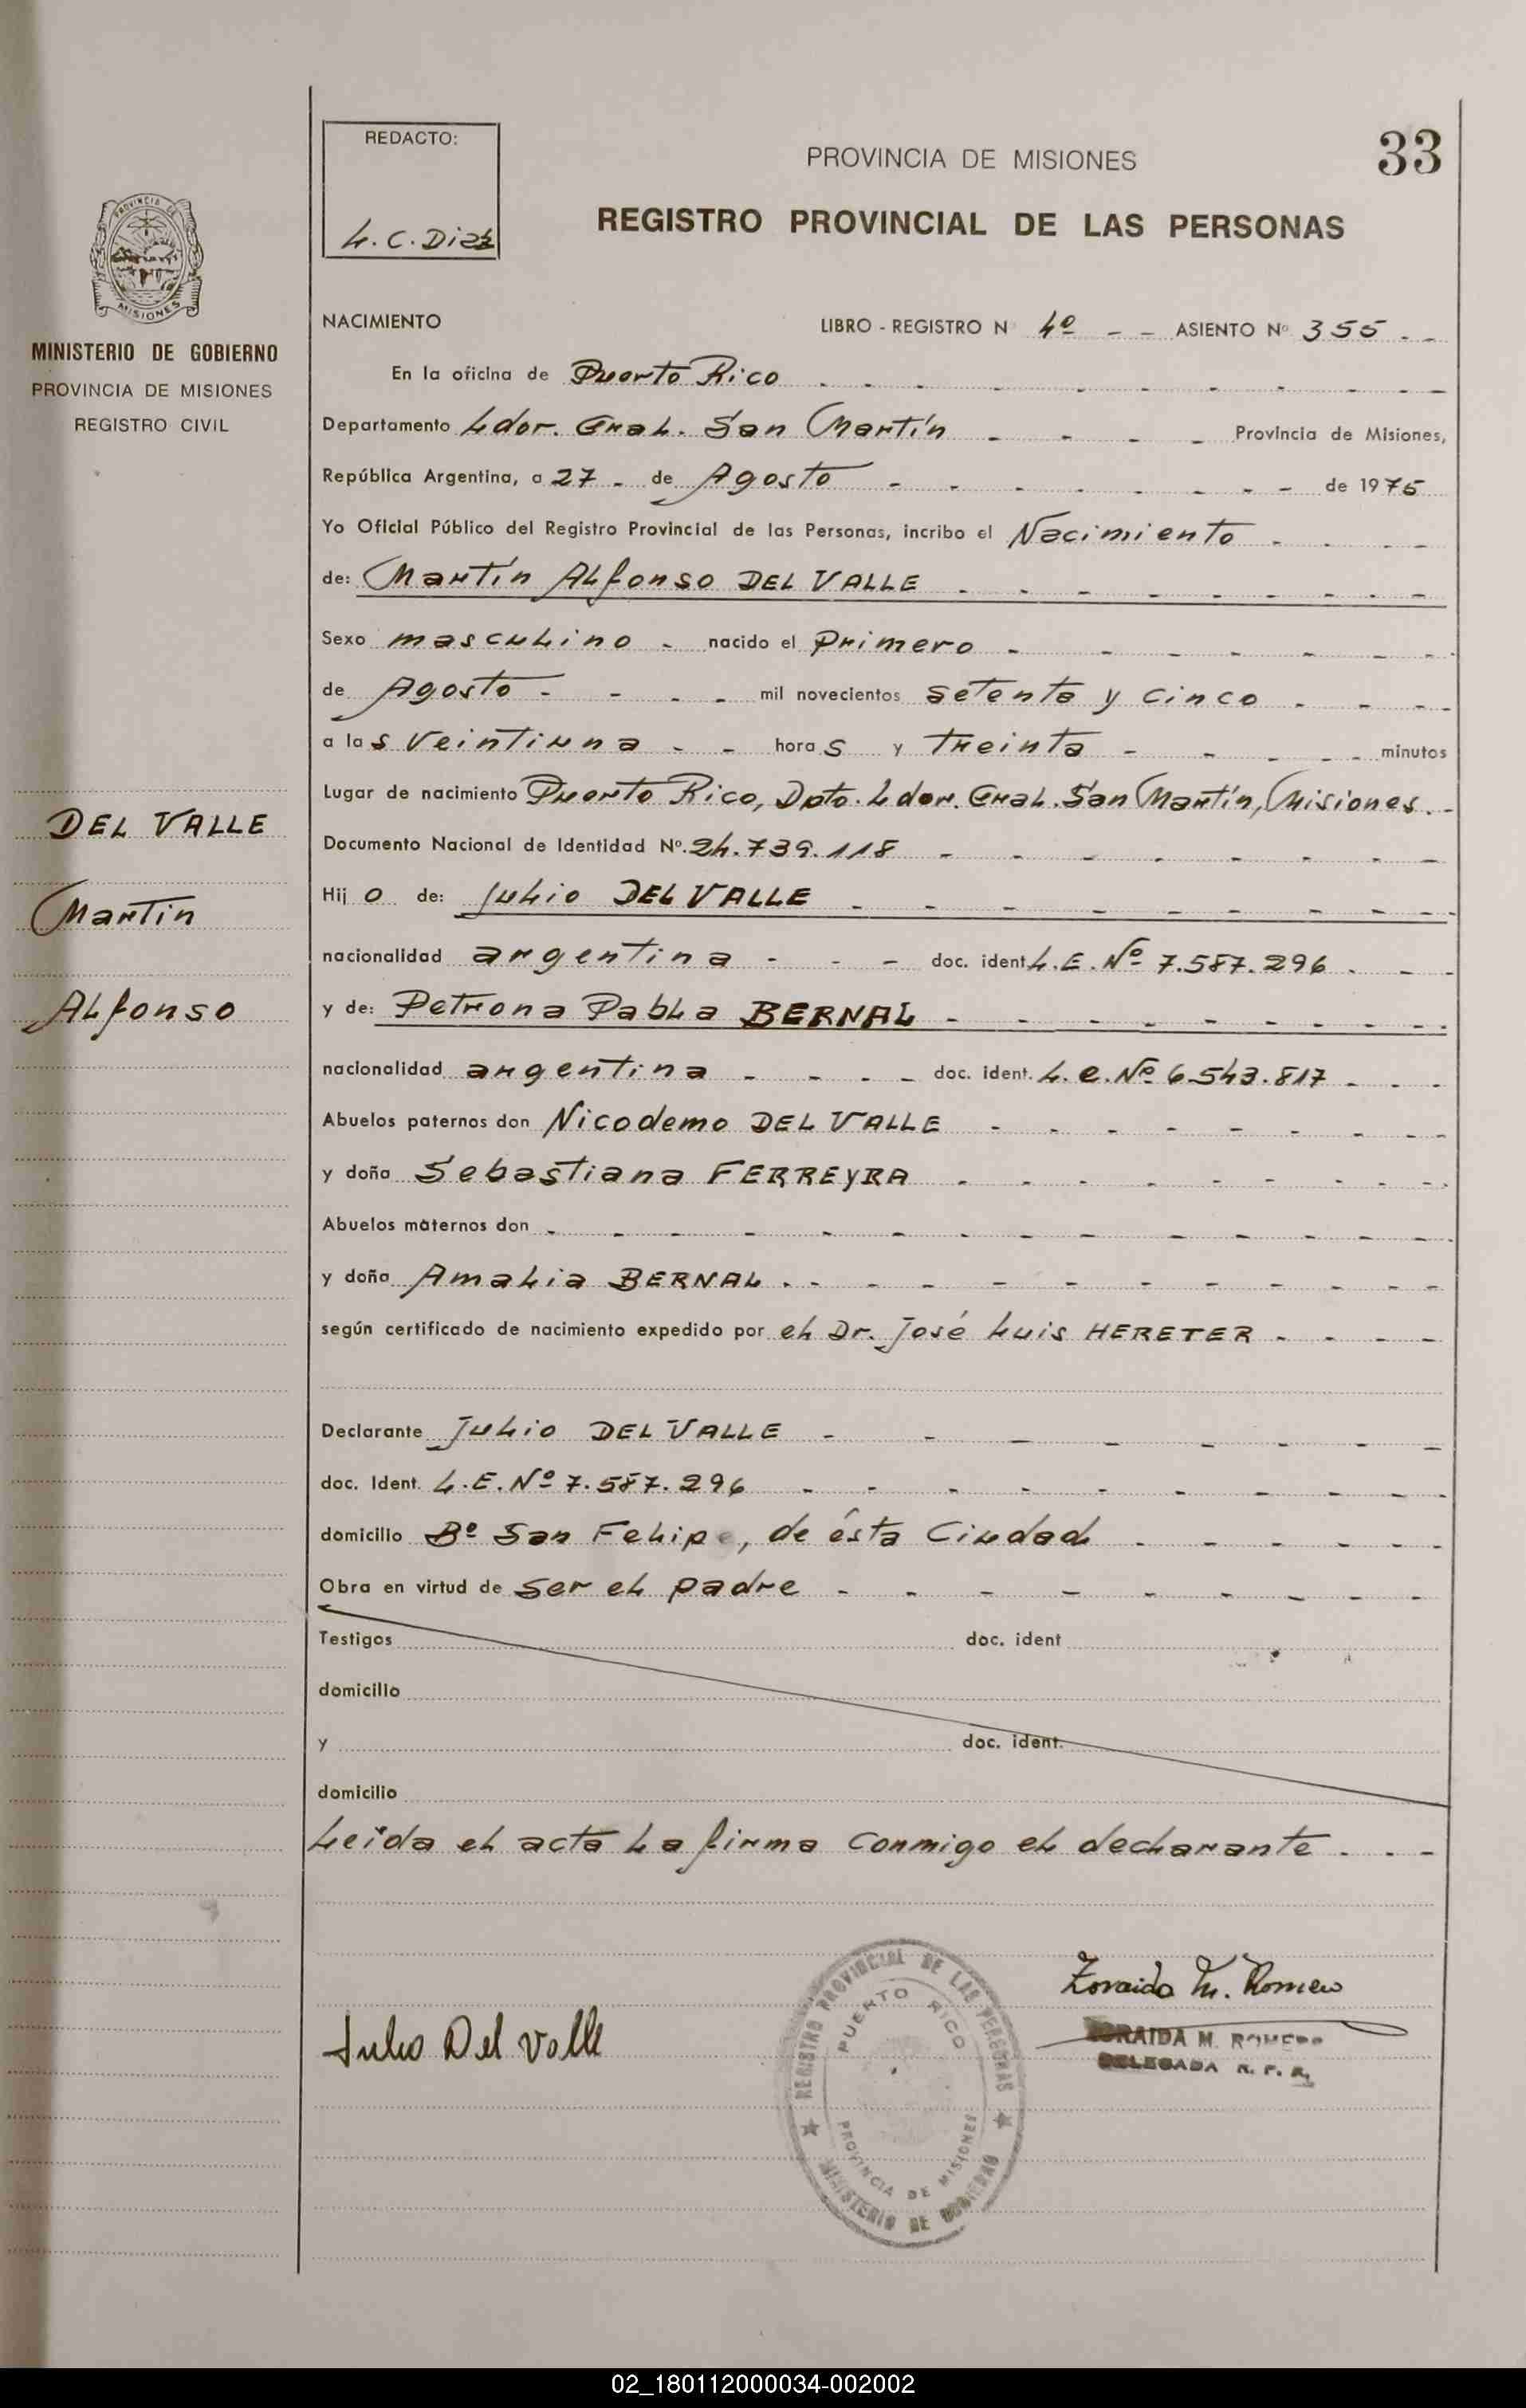 REDACTO:
L.C. Diaz
PROVINCIA DE MISIONES
33
REGISTRO PROVINCIAL DE LAS PERSONAS
PROVINCIA DE
MISIONES
MINISTERIO DE GOBIERNO
PROVINCIA DE MISIONES
REGISTRO CIVIL
DEL VALLE
Martín
Alfonso
NACIMIENTO LIBRO - REGISTRO Nº 4º - - ASIENTO Nº 355 - -
En la oficina de Puerto Rico
Departamento Ldor. Gral. San Martín - - - - Provincia de Misiones,
República Argentina, a 27 - de Agosto - - - - - - - - de 1975
Yo Oficial Público del Registro Provincial de las Personas, incribo el Nacimiento
de: Martín Alfonso DEL VALLE
Sexo masculino - nacido el Primero
de Agosto - - - - mil novecientos setenta y cinco
a las veintiuna - - horas y treinta - - - - - minutos
Lugar de nacimiento Puerto Rico, Dpto. Ldor. Gral. San Martín, Misiones. -
Documento Nacional de Identidad Nº. 24.739.118
Hijo de: Julio DEL VALLE
nacionalidad argentina - - - doc. ident L.E. Nº 7.587.296
y de: Petrona Pabla BERNAL
nacionalidad argentina - - - - doc. ident. L.C. Nº 6.543.817
Abuelos paternos don Nicodemo DEL VALLE
y doña Sebastiana FERREYRA
Abuelos maternos don
y doña Amalia BERNAL
según certificado de nacimiento expedido por el Dr. José Luis HERETER
Declarante Julio DEL VALLE
doc. Ident. L.E. Nº 7.587.296
domicilio Bº San Felipe, de ésta Ciudad
Obra en virtud de ser el padre
Testigos doc. ident
domicilio
y doc. ident.
domicilio
Leída el acta la firma conmigo el declarante
Julio Del Valle
REGISTRO PROVINCIAL DE LAS PERSONAS
PUERTO RICO
PROVINCIA DE MISIONES
MINISTERIO DE GOBIERNO
Zoraida M. Romero
ZORAIDA M. ROMERO
DELEGADA R. P. P.
02_180112000034-002002